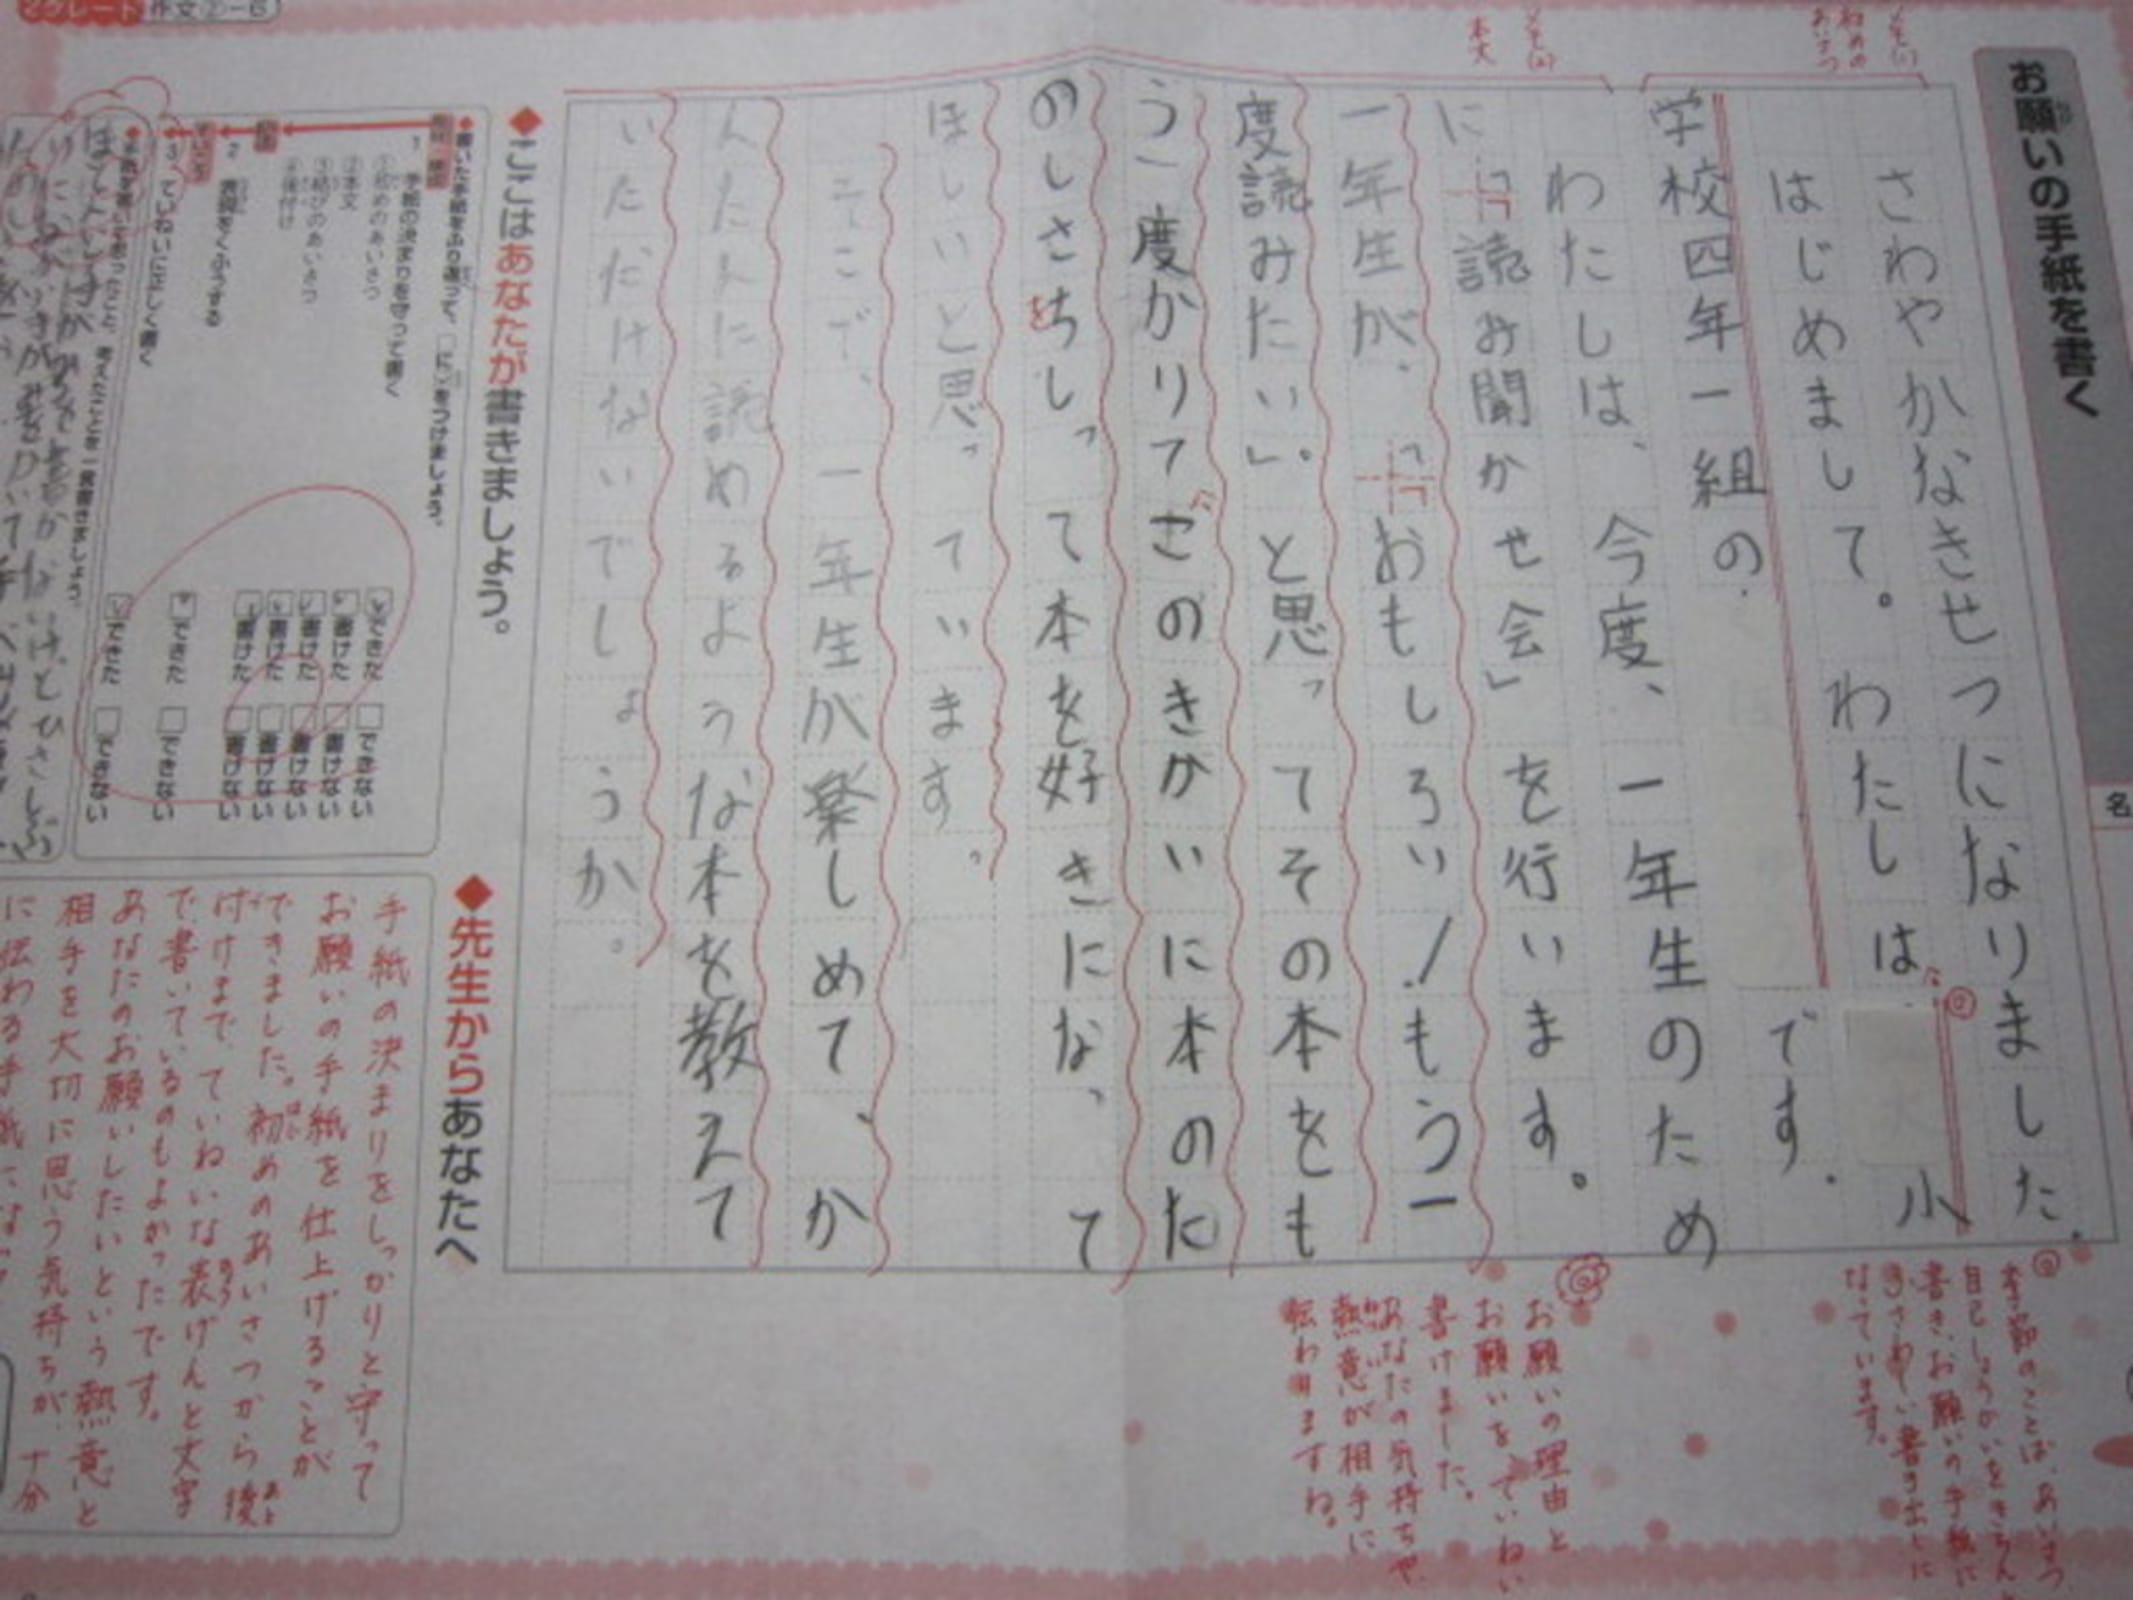 お願いの手紙を書く
さわやかなきせつになりました。
はじめまして。わたしは、
小
学校四年一組の
です。
わたしは、今度、一年生のため
に「読み聞かせ会」を行います。
一年生が、「おもしろい!もう一
度読みたい」。と思ってその本をも
う一度かりてこのきかいに本のた
のしさちしって本を好きになって
ほしいと思っています。
そこで、一年生が楽しめて、か
んたんに読めるような本を教えて
いただけないでしょうか。
◆ここはあなたが書きましょう。
◆書いた手紙をふり返って、□に✓をつけましょう。
1 手紙の決まりを守って書く
①初めのあいさつ
②本文
③結びのあいさつ
④後付け
2 表現をくふうする
3 ていねいに正しく書く
できた できない
書けた 書けない
書けた 書けない
書けた 書けない
書けた 書けない
できた できない
できた できない
◆先生からあなたへ
手紙の決まりをしっかりと守って
お願いの手紙を仕上げることが
できました。初めのあいさつから後
付けまで、ていねいな表げんと文字
で書いているのもよかったです。
あなたのお願いしたいという熱意と
相手を大切に思う気持ちが、十分
お願いの理由と
お願いを、ていねい
書けました。
あなたの気持ちや
熱意が相手に
伝わりますね。
季節のことば、あいさつ
自己しょうかいをきちんと
書き、お願いの手紙に
ふさわしい書き出しに
なっています。